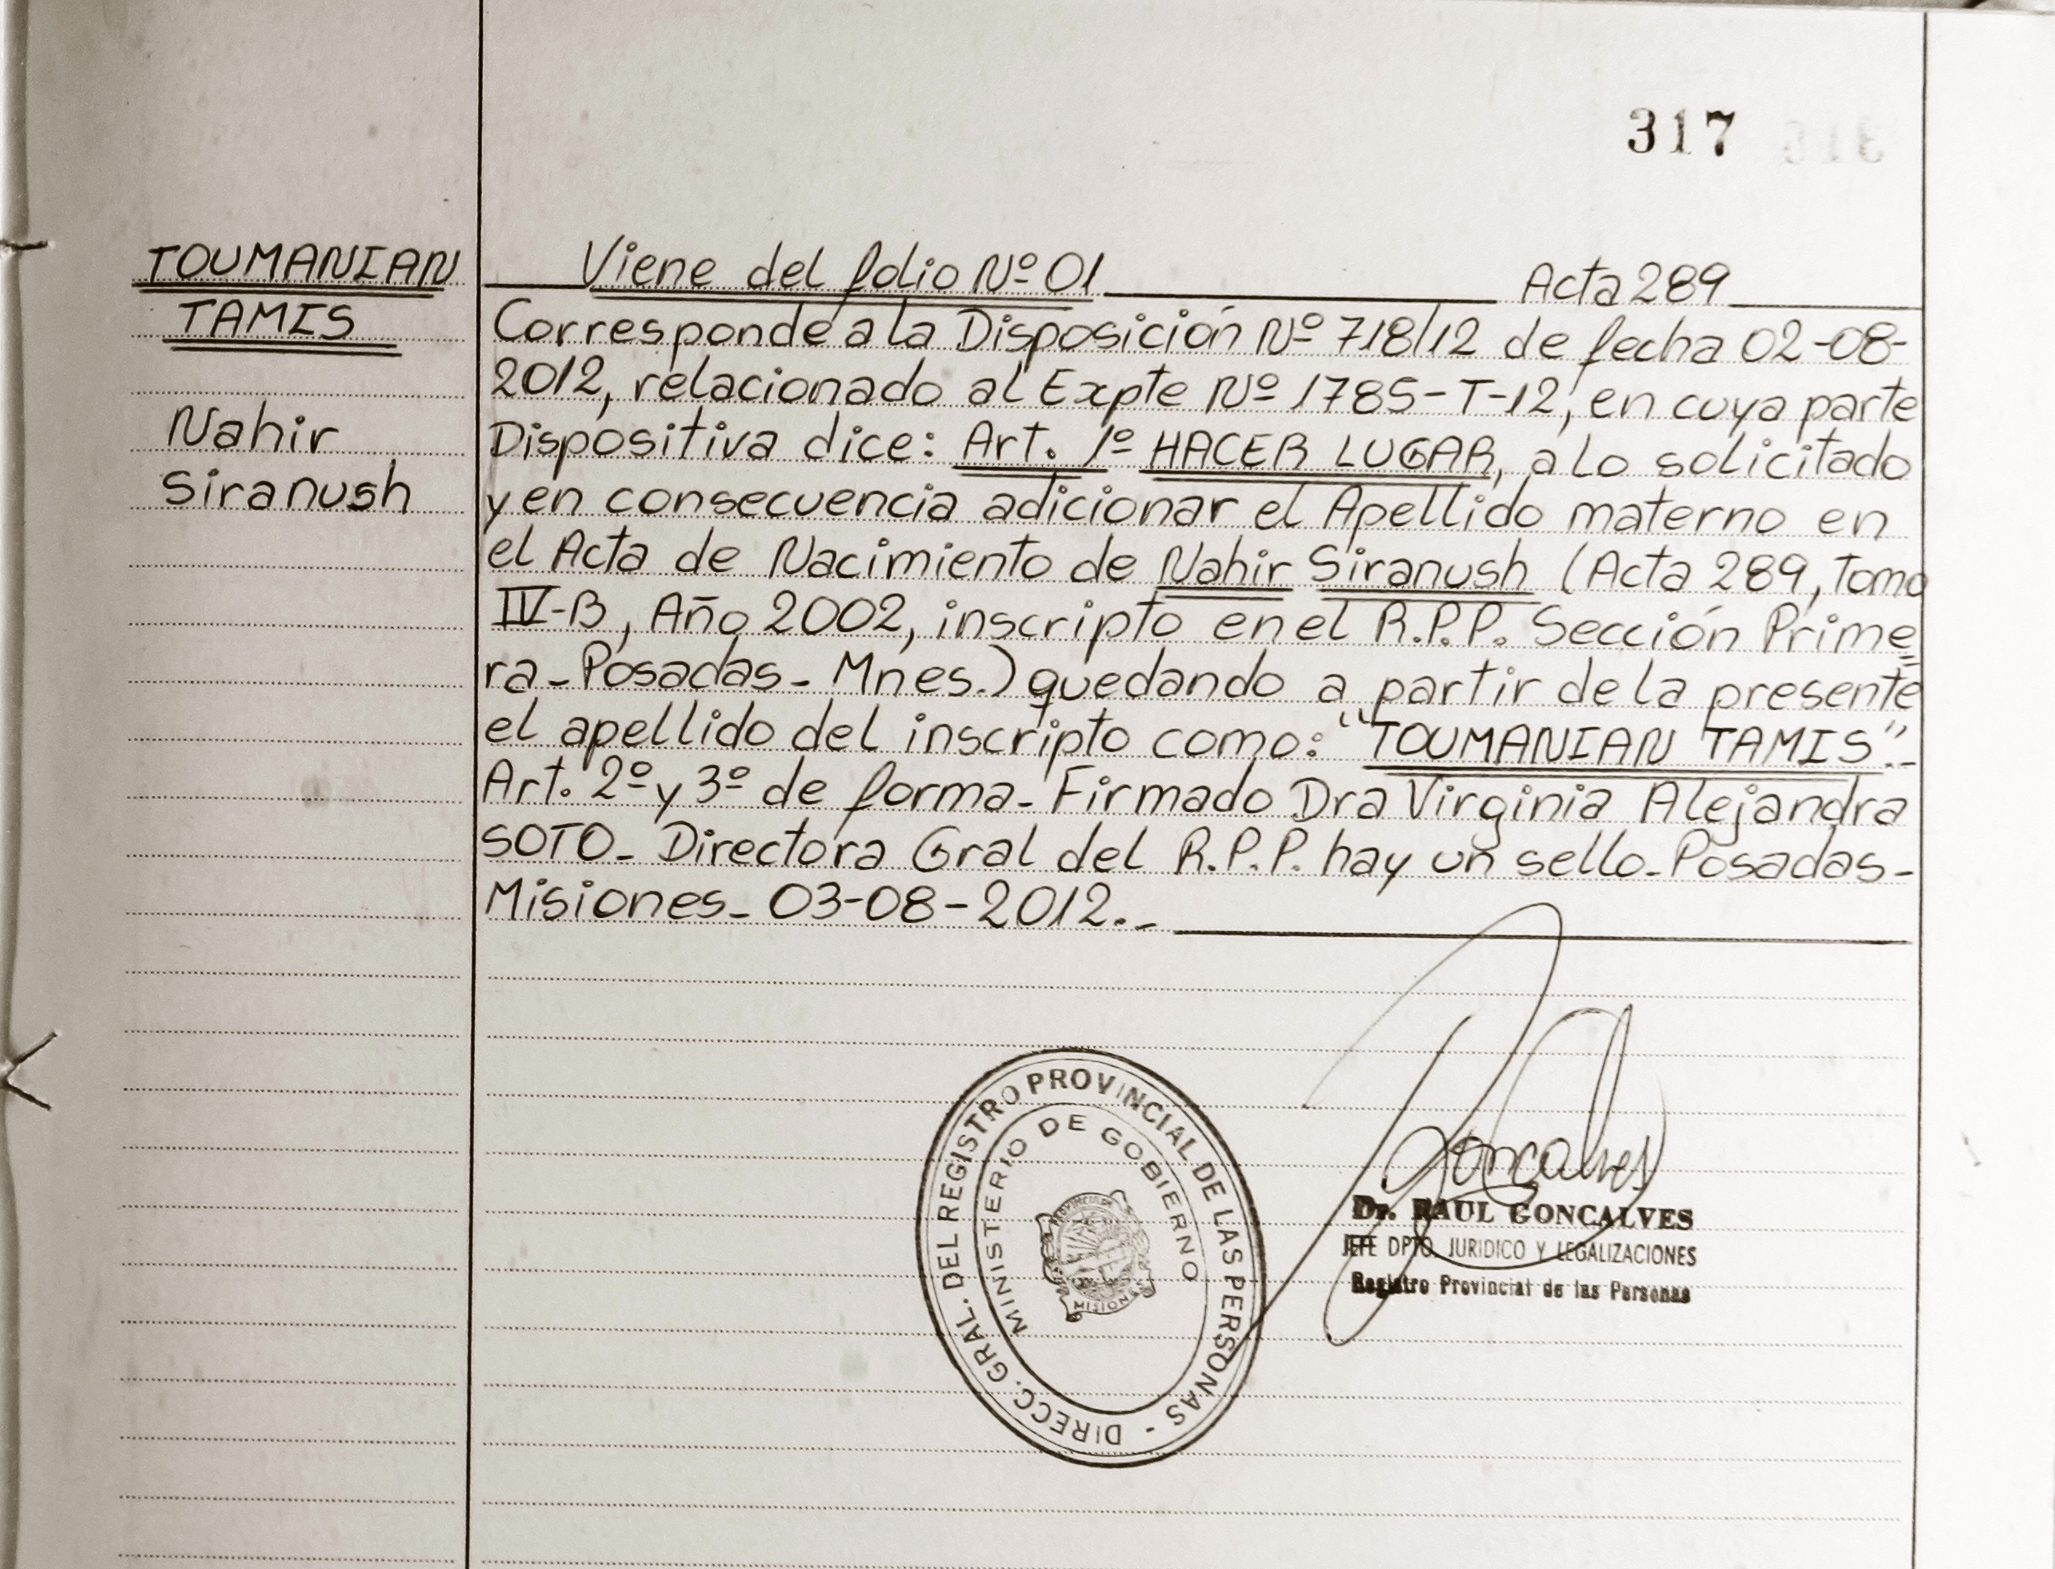 317
TOUMANIAN
TAMIS
Nahir
Siranush
Viene del folio Nº 01 Acta 289
Corresponde a la Disposición Nº 718/12 de fecha 02-08-
2012, relacionado al Expte Nº 1785-T-12, en cuya parte
Dispositiva dice: Art. 1º HACER LUGAR, a lo solicitado
y en consecuencia adicionar el Apellido materno en
el Acta de Nacimiento de Nahir Siranush (Acta 289, Tomo
IV-B, Año 2002, inscripto en el R.P.P. Sección Prime=
ra-Posadas-Mnes.) quedando a partir de la presente
el apellido del inscripto como: "TOUMANIAN TAMIS".-
Art. 2º y 3º de forma- Firmado Dra Virginia Alejandra
SOTO- Directora Gral del R.P.P. hay un sello-Posadas-
Misiones- 03-08-2012.-
DIRECC. GRAL. DEL REGISTRO PROVINCIAL DE LAS PERSONAS -
MINISTERIO DE GOBIERNO
PROVINCIA DE
MISIONES
Goncalves
Dr. RAUL GONCALVES
JEFE DPTO. JURIDICO Y LEGALIZACIONES
Registro Provincial de las Personas